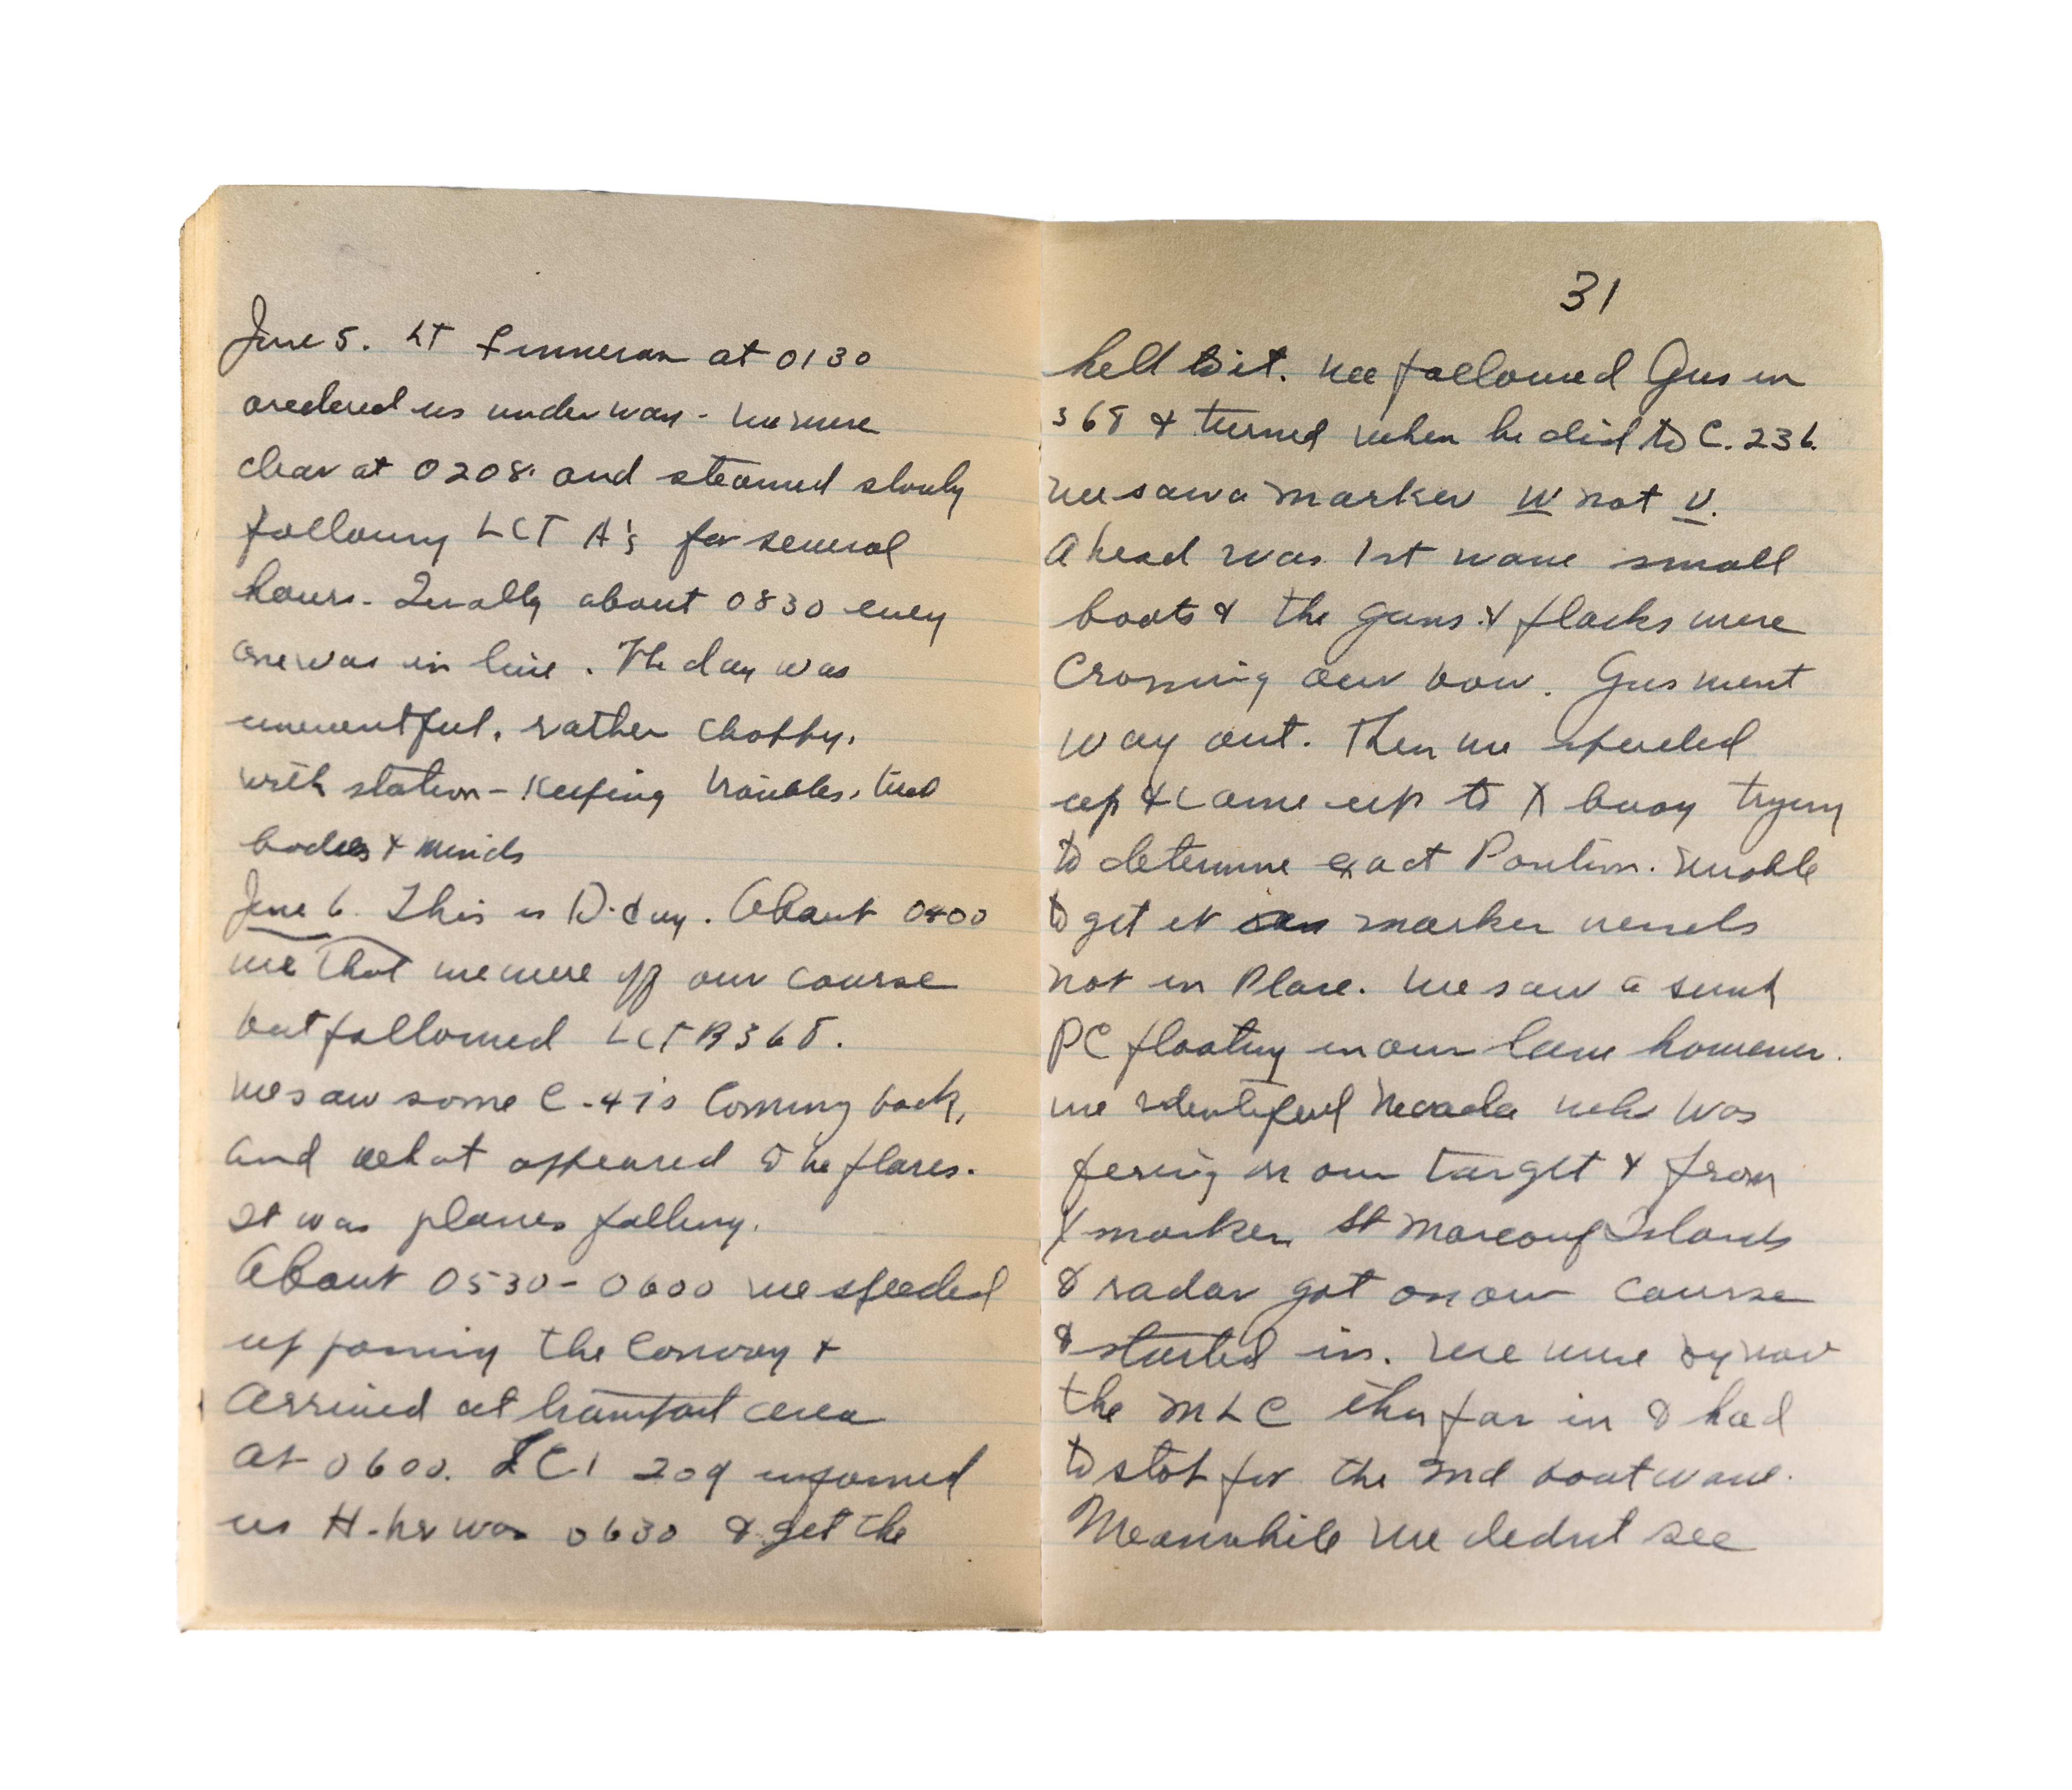 June 5. LT Finneran at 0130
oredered us under way - we were
clear at 0208. and steamed slowly
following LCT A's for several
hours. Finally about 0830 every
one was in line. The day was
uneventful, rather choppy,
with station-keeping troubles, tired
bodies & minds
June 6. This is D-day. About 0400
we that we were off our course
but followed LCT B 368.
we saw some C-47s coming back,
and what appeared to be flares.
It was planes falling.
About 0530-0600 we speeded
up passing the convoy &
arrived at transport area
at 0600. LCI 209 informed
us H-hr was 0630 & get the
31
hell to it. We followed Gus in
368 & turned when he did to C. 236.
We saw a marker W not V.
Ahead was 1st wave small
boats & the guns & flacks were
crossing our bow. Gus went
way out. Then we speeded
up & came up to X buoy trying
to determine exact Position. Unable
to get it as marker vessels
not in Place. We saw a sunk
PC floating in our lane however.
we identified Nevada who was
firing on our target & from
X marker St Marcouf Islands
& radar got on our course
& started in. We were by now
the MLC thus far in & had
to stop for the 2nd boat wave.
Meanwhile we didnt see